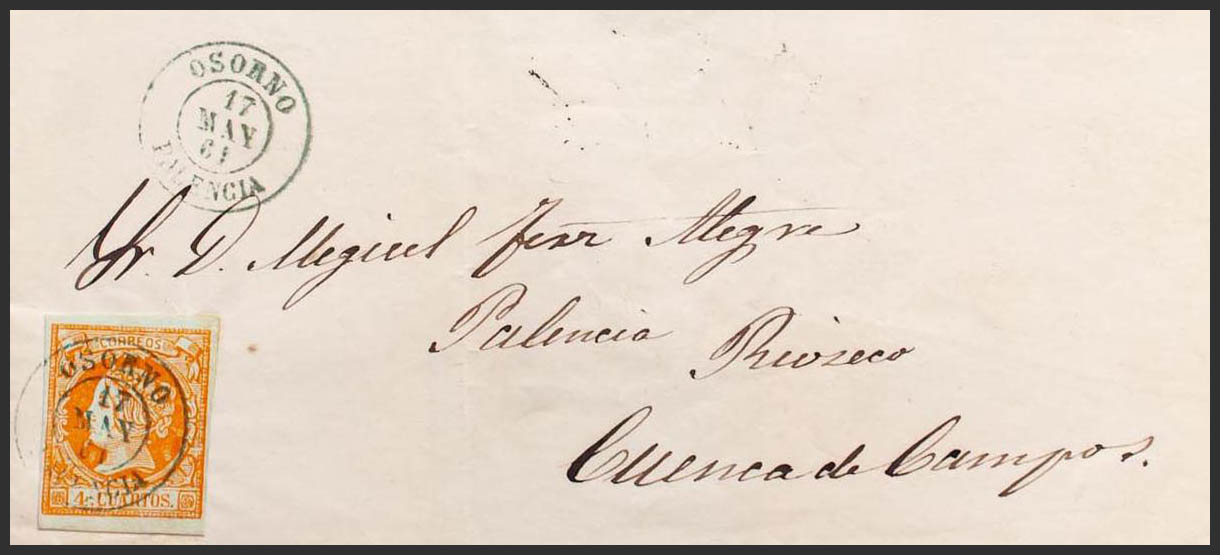 OSORNO
17
MAY
61
PALENCIA
Sr. D. Miguel Fernz Alegre
Palencia Rioseco
Cuenca de Campos.
CORREOS
OSORNO
17
MAY
61
4 CUARTOS.